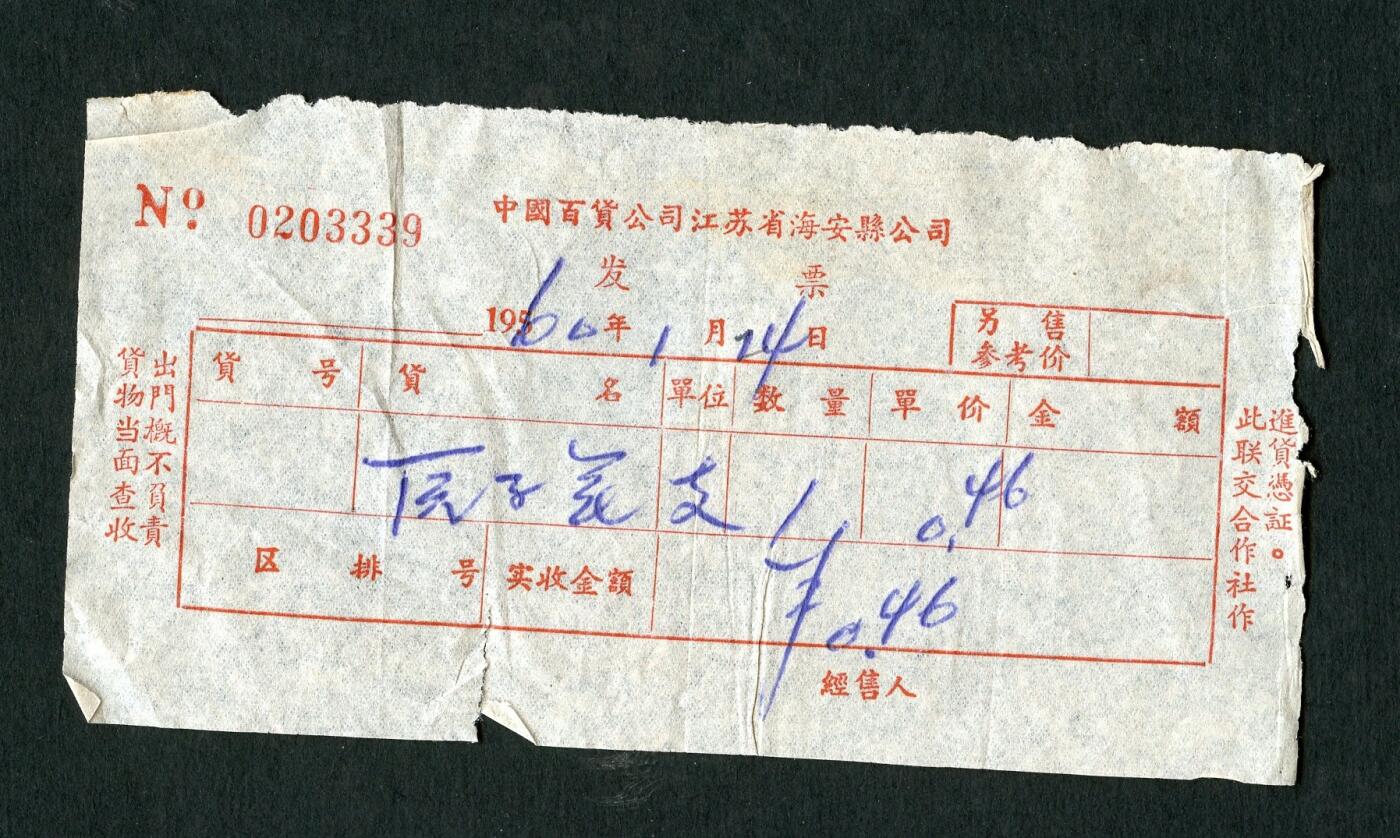 No. 0203339
中國百貨公司江苏省海安縣公司
发票
195 60年1月14日
另售
参考价
貨号 貨名 單位 数量 單价 金額
支 1 0.46
区排号 实收金額 ¥0.46
經售人
出門概不負責
貨物当面查收
進貨憑証。
此联交合作社作